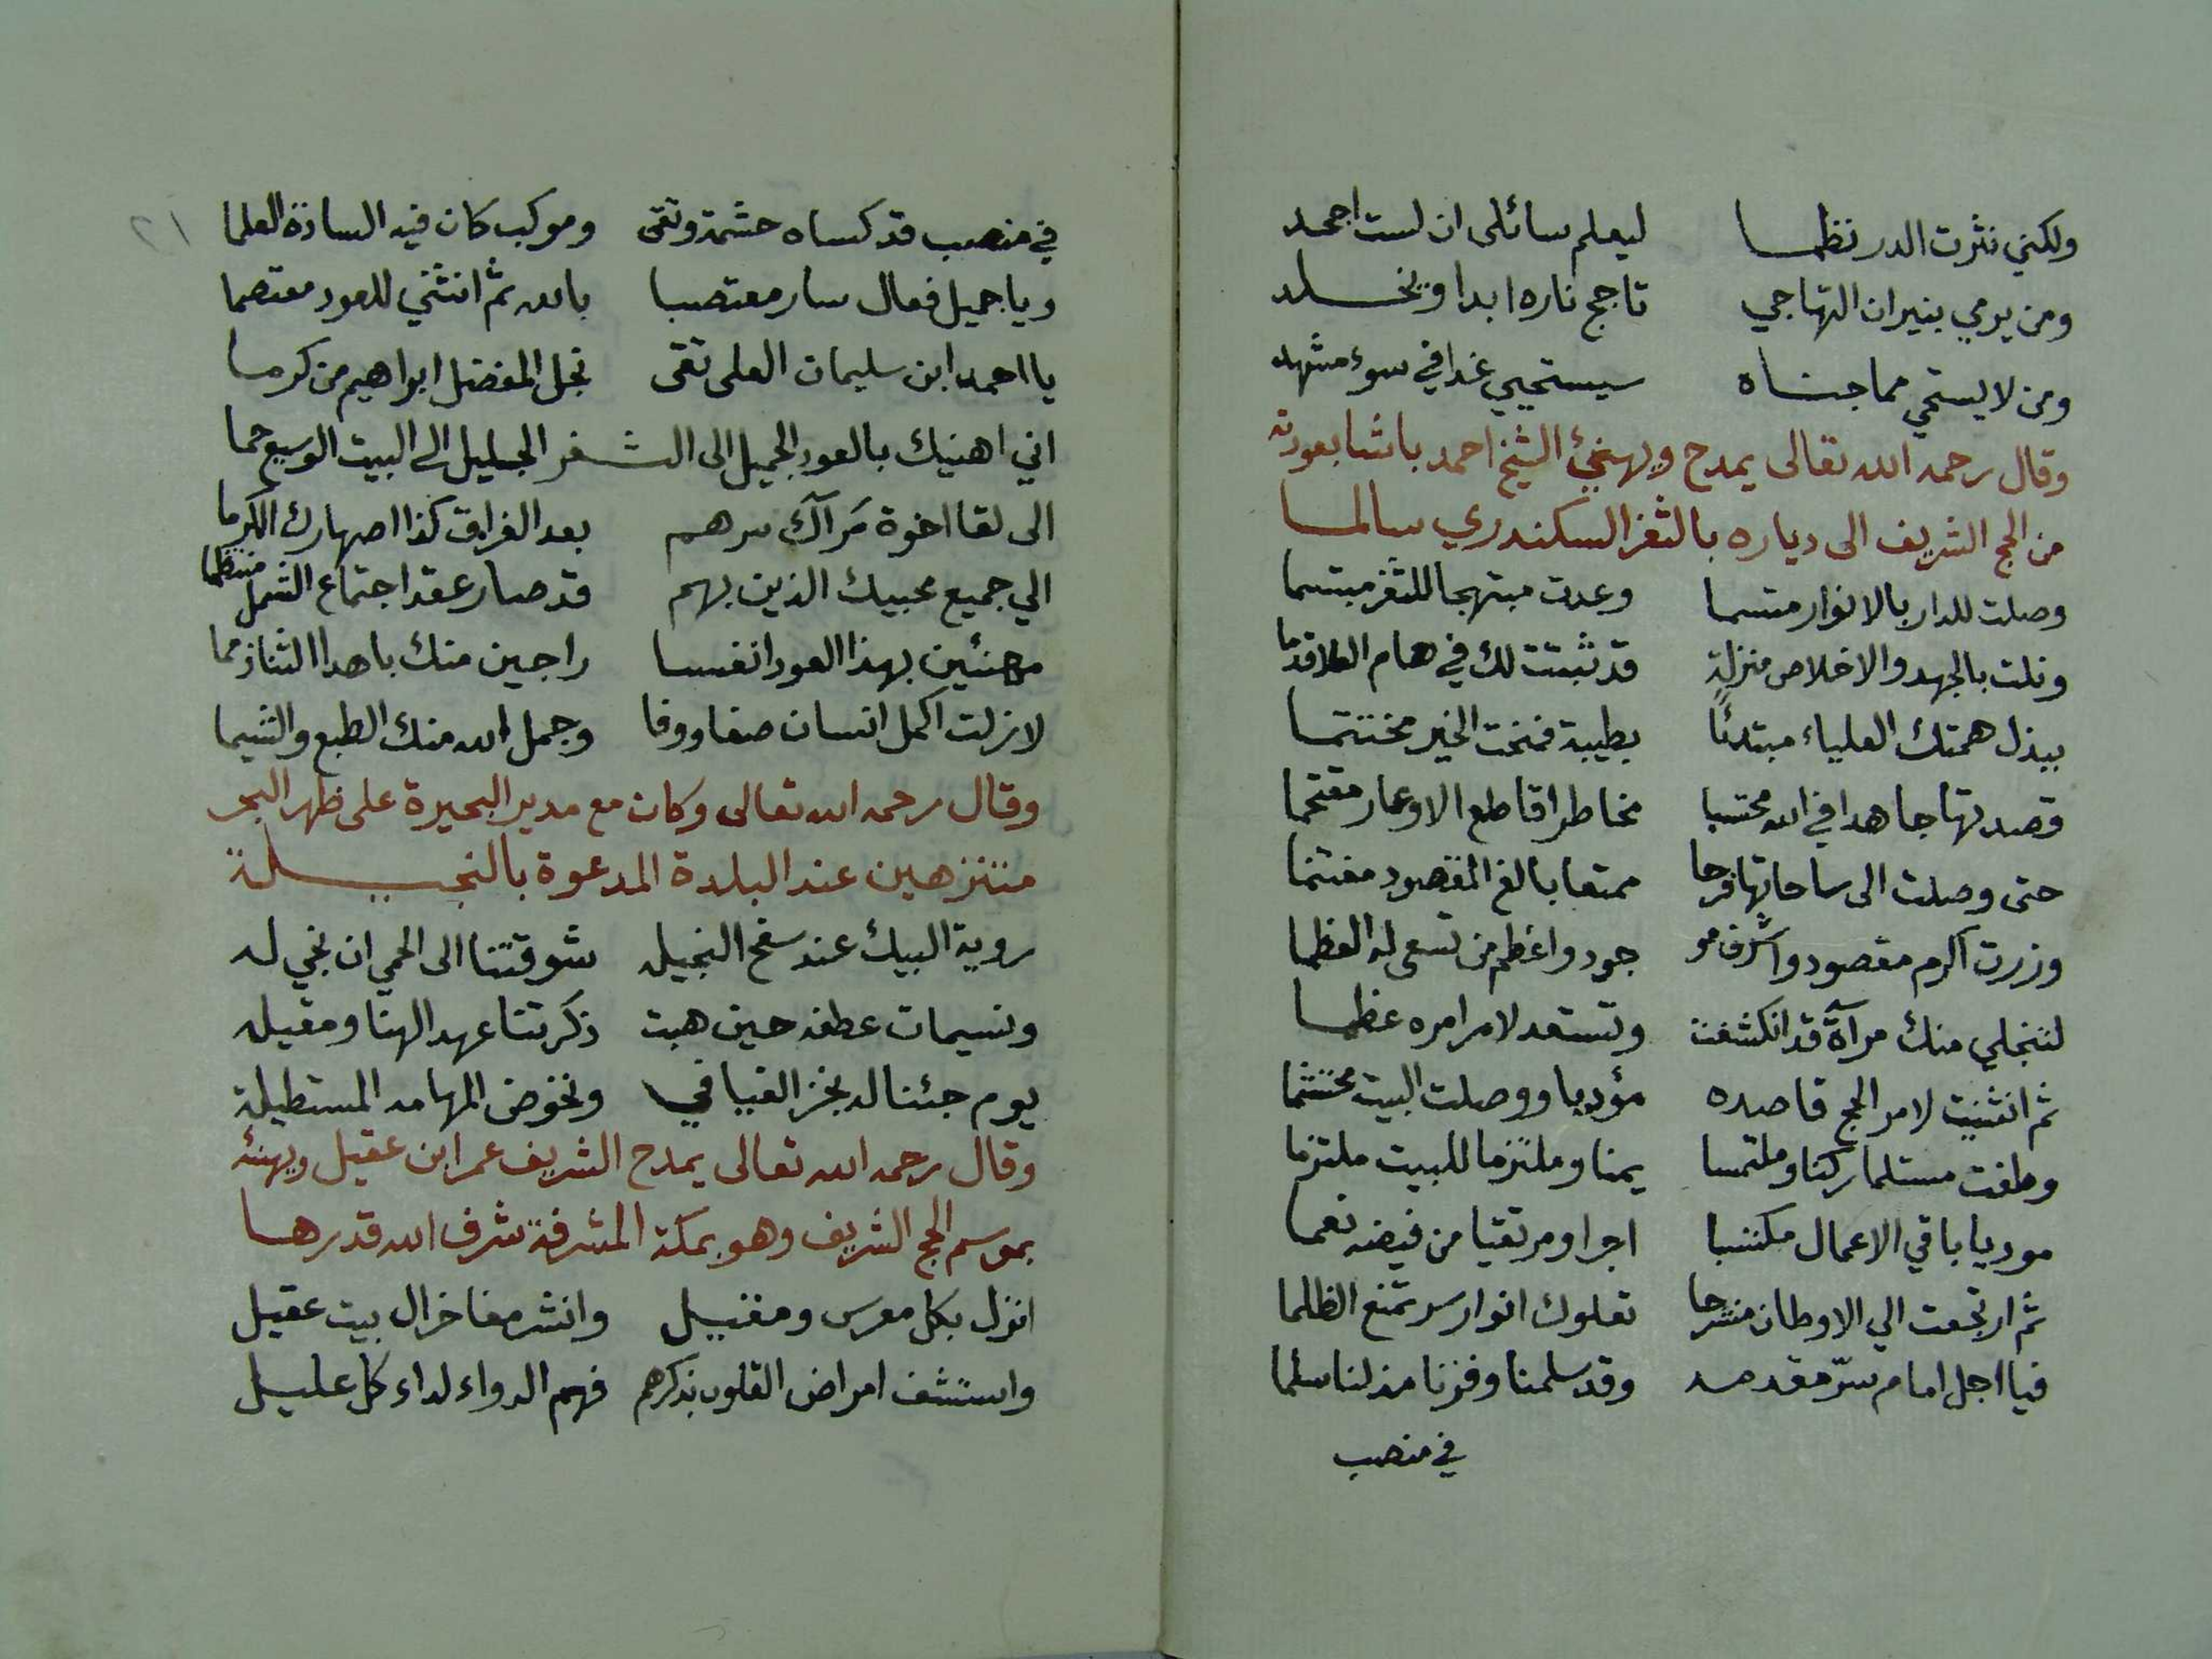 ولكني نثرت الدر نظما ليعلم سائلى ان لست اجحد
ومن يرمي بنيران التهاجي تاجج ناره ابدا ويخلد
ومن لا يستحي مما جناه سيستحيي غدا في سوء مشهد
وقال رحمه الله تعالى يمدح ويهنئ الشيخ احمد باشا بعودته
من الحج الشريف الى دياره بالثغر السكندري سالما
وصلت للدار بالانوار متسما وعدت مبتهجا للثغر مبتسما
ونلت بالجهد والاخلاص منزلة قد ثبتت لك في هام العلا قدما
ببذل همتك العلياء مبتدئًا بطيبة فمنحت الخير مختتما
قصدتها جاهدا في الله محتسبا مخاطرا قاطع الاوعار مقتحما
حتى وصلت الى ساحاتها فرحا ممتعا بالغ المقصود مغتنما
وزرت اكرم مقصود واشرف مو جود واعظم من تسعى له العظما
لتنجلي منك مرآة قد انكشفت وتستعد لامر امره عظما
ثم انثنيت لامر الحج قاصده مؤديا ووصلت البيت محتشما
وطفت مستلما ركنا وملتمسا يمنا وملتزما للبيت ملتزما
موديا باقي الاعمال مكتسبا اجرا ومرتقيا من فيضه نعما
ثم ارتجعت الي الاوطان منشرحا تعلوك انوار سر تمنع الظلما
فيا اجل امام سرّ مقدمه وقد سلمنا وفزنا مذ لنا سلما
في منصب
٢١
في منصب قد كساه حشمة وتقى وموكب كان فيه السادة العلما
ويا جميل فعال سار معتصبا بالله ثم انثني للعود معتصما
يا احمد ابن سليمان العلى تقى نجل المفضل ابراهيم من كرما
اني اهنيك بالعود الجميل الى الثغر الجليل الي البيت الوسيع حما
الى لقا اخوة مَرآك سرهم بعد الفراق كذا اصهارك الكرما
الي جميع محبيك الذين بهم قد صار عقد اجتماع الشمل منتظما
مهنئين بهذا العود انفسا راجين منك باهدا الثنا ذمما
لازلت اكمل انسان صفا ووفا وجمل الله منك الطبع والشيما
وقال رحمه الله تعالى وكان مع مدير البحيرة على ظهر البحر
متنزهين عند البلدة المدعوة بالنجيلة
روية البيك عند سفح النجيله شوقتنا الى الحمي ان نجي له
ونسيمات عطفه حين هبت ذكرتنا عهد الهنا ومقيله
يوم جئنا له نجز الفيافي ونخوض المهامه المستطيلة
وقال رحمه الله تعالى يمدح الشريف عمر ابن عقيل ويهنئه
بموسم الحج الشريف وهو بمكة المشرفة شرف الله قدرها
انزل بكل معرس ومقيل وانشر مفاخر ال بيت عقيل
واستشف امراض القلوب بذكرهم فهم الدواء لداء كل عليل